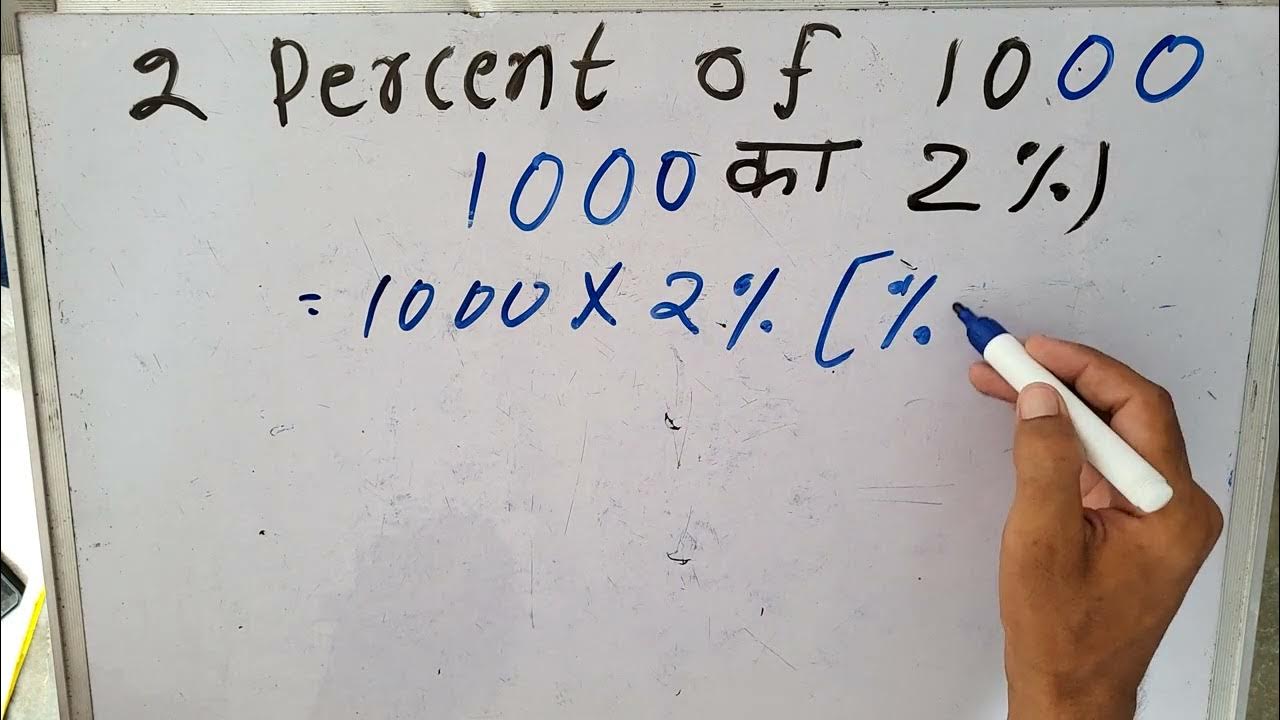 2 Percent of 1000
1000 का 2%)
= 1000 X 2% [%